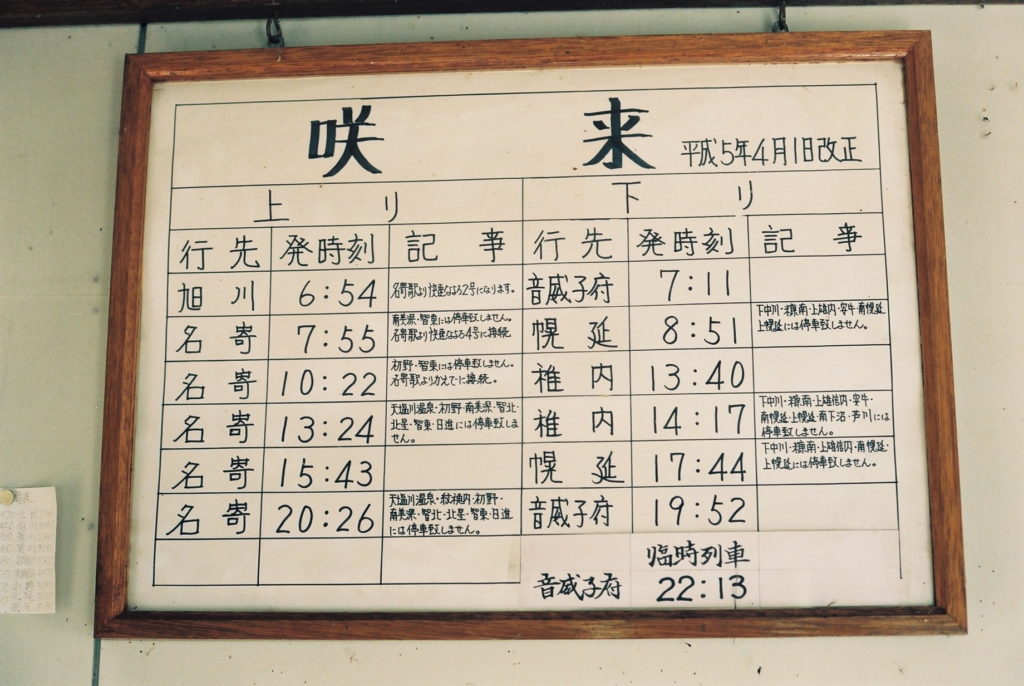 咲来 平成5年4月1日改正
上り 下り
行先 発時刻 記事 行先 発時刻 記事
旭川 6:54 名寄駅より快速なよろ2号になります。 音威子府 7:11
名寄 7:55 南美深・智東には停車致しません。
名寄駅より快速なよろ4号に接続 幌延 8:51 下中川・糠南・上雄信内・安牛・南幌延
上幌延には停車致しません。
名寄 10:22 初野・智東には停車致しません。
名寄駅よりかえでに接続。 稚内 13:40
名寄 13:24 天塩川温泉・初野・南美深・智北・
北星・智東・日進には停車致しま
せん。 稚内 14:17 下中川・糠南・上雄信内・安牛・
南幌延・上幌延・南下沼・芦川には
停車致しません。
名寄 15:43 幌延 17:44 下中川・糠南・上雄信内・南幌延・
上幌延には停車致しません。
名寄 20:26 天塩川温泉・紋穂内・初野・
南美深・智北・北星・智東・日進
には停車致しません。 音威子府 19:52
臨時列車
音威子府 22:13